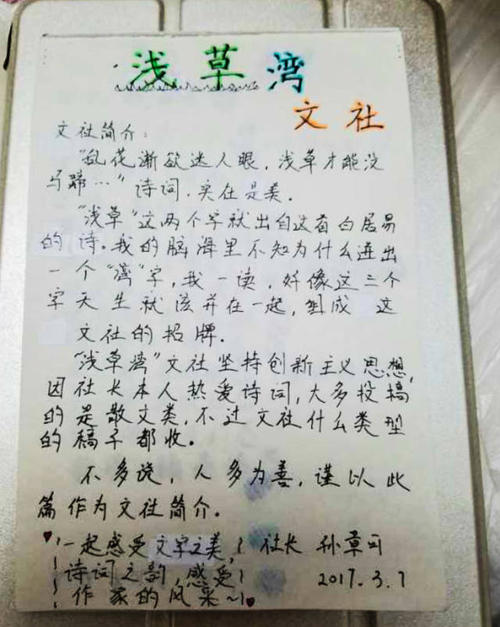 浅草湾
文社
文社简介：
"乱花渐欲迷人眼，浅草才能没
马蹄…"诗词，实在是美.
"浅草"这两个字就出自这首白居易
的诗。我的脑海里不知为什么迸出
一个"湾"字，我一读，好像这三个
字天生就该并在一起，组成 这
文社的招牌.
"浅草湾"文社坚持创新主义思想，
因社长本人热爱诗词，大多投稿
的是散文类，不过文社什么类型
的稿子都收。
不多说，人多为善，谨以此
篇作为文社简介.
♥一起感受文字之美， 社长 孙草
诗词之韵，感受 2017.3.7
作家的风采~♥